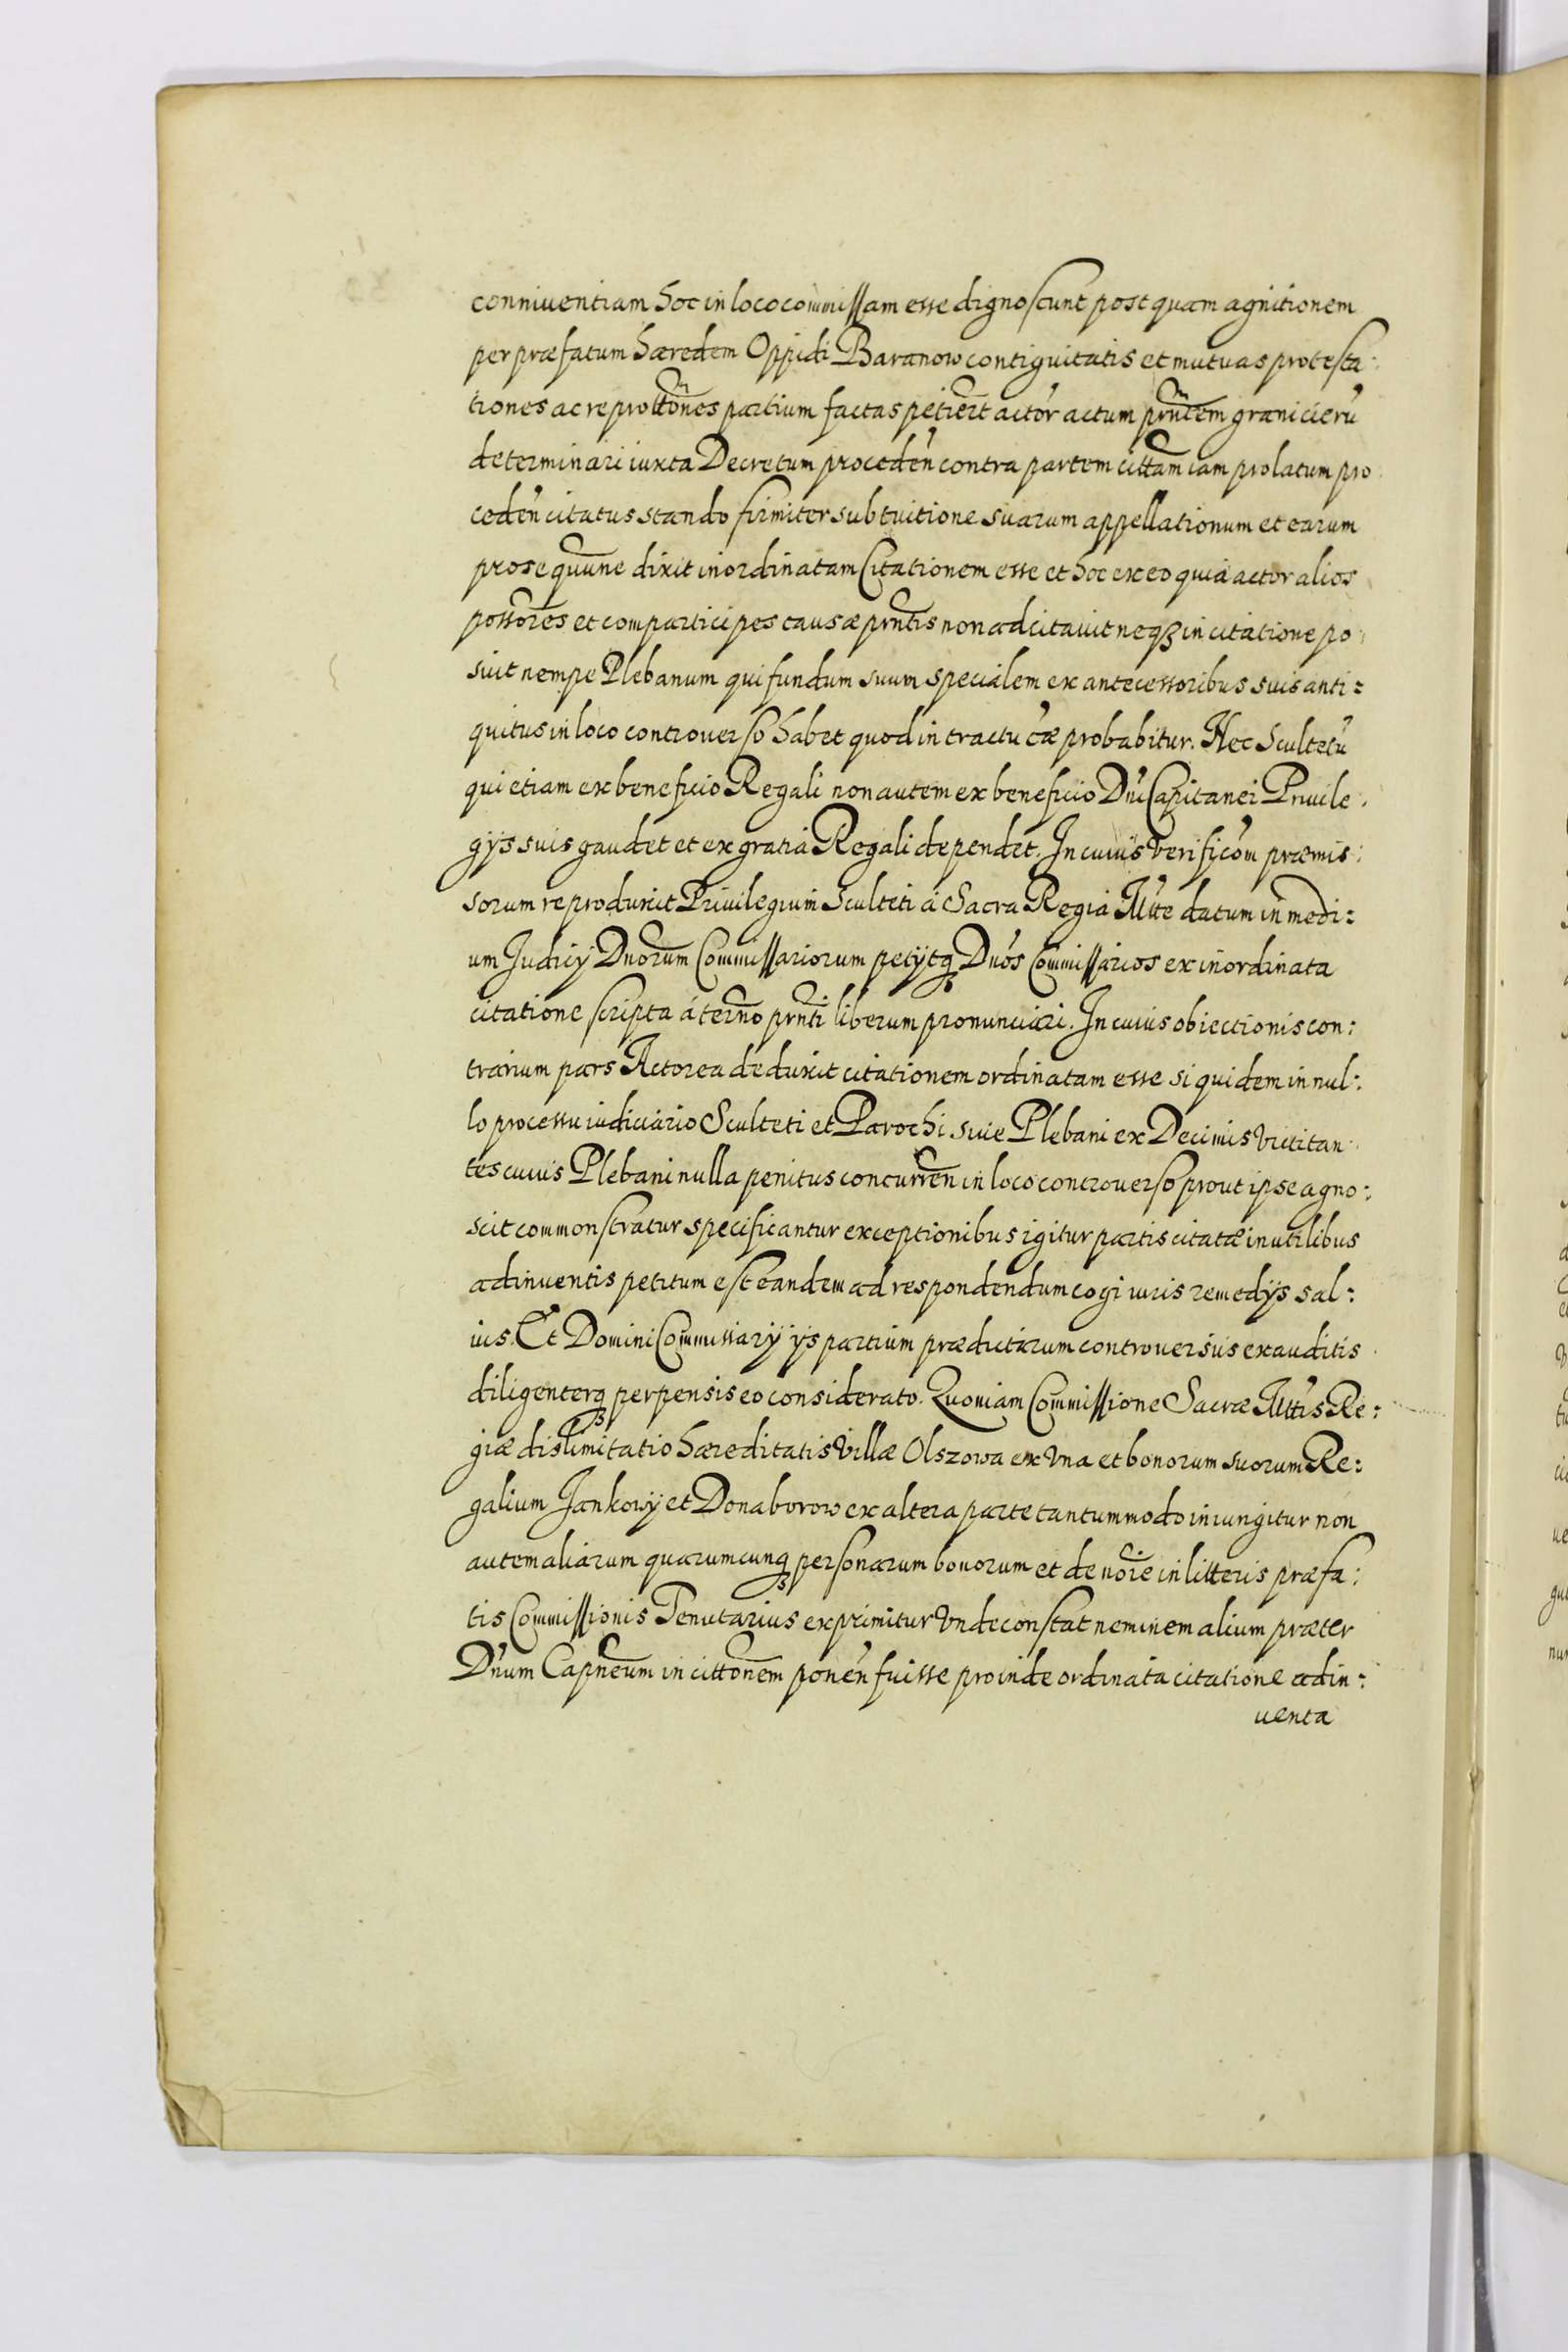 conniuentiam hoc in loco commissam esse dignoscunt post quam agnitionem
per præfatum hæredem Oppidi Baranow contiguitatis et mutuas protesta:
tiones ac reprottōnes partium factas petiert actor actum prn̄tem granicierū
determinari iuxta Decretum proceden̄ contra partem cittam iam prolatum pro
ceden̄ citatus stando firmiter sub tuitione suarum appellationum et earum
prosequun̄e dixit inordinatam Citationem esse et hoc ex eo quia actor alios
possores et comparticipes causæ prn̄tis non adcitauit neqꝫ in citatione po
suit nempe Plebanum qui fundum suum specialem ex antecessoribus suis anti:
quitus in loco controuerso habet quod in tractu cæ probabitur. Nec Scultetū
qui etiam ex beneficio Regali non autem ex beneficio Dni Capitanei Priuile.
gijs suis gaudet et ex gratia Regali dependet. In cuius verificōm præmis:
sorum reproduxit Priuilegium Sculteti á Sacra Regia Mtte datum in medi:
um Judicij Dnorum Commissariorum petijtqꝫ Dnos Commissarios ex inordinata
citatione scripta á termo prn̄ti liberum pronunciari. In cuius obiectionis con:
trarium pars Actorea deduxit citationem ordinatam esse siquidem in nul:
lo processu iudiciario Sculteti et Parochi siue Plebani ex Decimis victitan
tes cuius Plebani nulla penitus concurren̄ in loco controuerso prout ipse agno:
scit commonstratur specificantur exceptionibus igitur partis citatæ inutilibus
adinuentis petitum est eandem ad respondendum cogi iuris remedijs sal:
uis. Et Domini Commissarij ijs partium prædictarum controuersijs exauditis
diligenterqꝫ perpensis eo considerato. Quoniam Commissione Sacræ Mttis Re:
giæ dislimitatio hæreditatis villæ Olszowa ex vna et bonorum suorum Re:
galium Jankowy et Donaborow ex altera parte tantummodo iniungitur non
autem aliarum quarumcunqꝫ personarum bonorum et de noīe in litteris præfa:
tis Commissionis Tenutarius exprimitur vnde constat neminem alium præter
Dnum Capneum in cittonem ponen̄ fuisse proinde ordinata citatione adin:
uenta